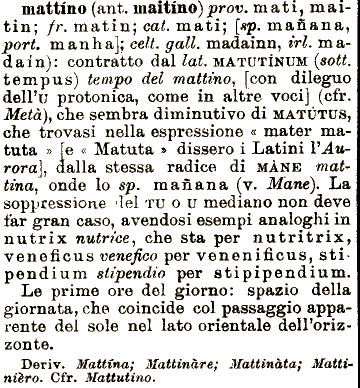 mattíno (ant. maitíno) prov. mati, mai-
tin; fr. matin; cat. mati; [sp. mañana,
port. manha]; celt. gall. madainn, irl. ma-
dain): contratto dal lat. MATUTÍNUM (sott.
tempus) tempo del mattino, [con dileguo
dell'U protonica, come in altre voci] (cfr.
Metà), che sembra diminutivo di MATÚTUS,
che trovasi nella espressione « mater ma-
tuta » [e « Matuta » dissero i Latini l'Au-
rora], dalla stessa radice di MÀNE mat-
tina, onde lo sp. mañana (v. Mane). La
soppressione del TU o U mediano non deve
far gran caso, avendosi esempi analoghi in
nutrix nutrice, che sta per nutritrix,
veneficus venefico per venenificus, sti-
pendium stipendio per stipipendium.
Le prime ore del giorno: spazio della
giornata, che coincide col passaggio appa-
rente del sole nel lato orientale dell'oriz-
zonte.
Deriv. Mattína; Mattinàre; Mattinàta; Matti-
nièro. Cfr. Mattutino.